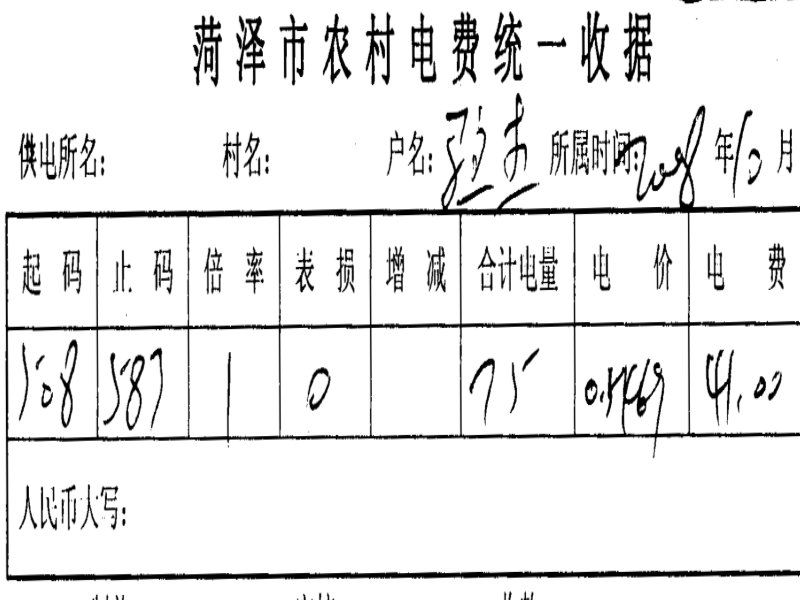 菏泽市农村电费统一收据
供电所名: 村名: 户名: 所属时间: 2008 年 10 月
起码 止码 倍率 表损 增减 合计电量 电价 电费
508 583 1 0 75 0.5469 41.00
人民币大写: